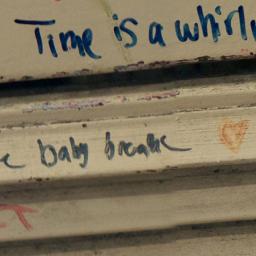 Time is a whirl
e baby breathe